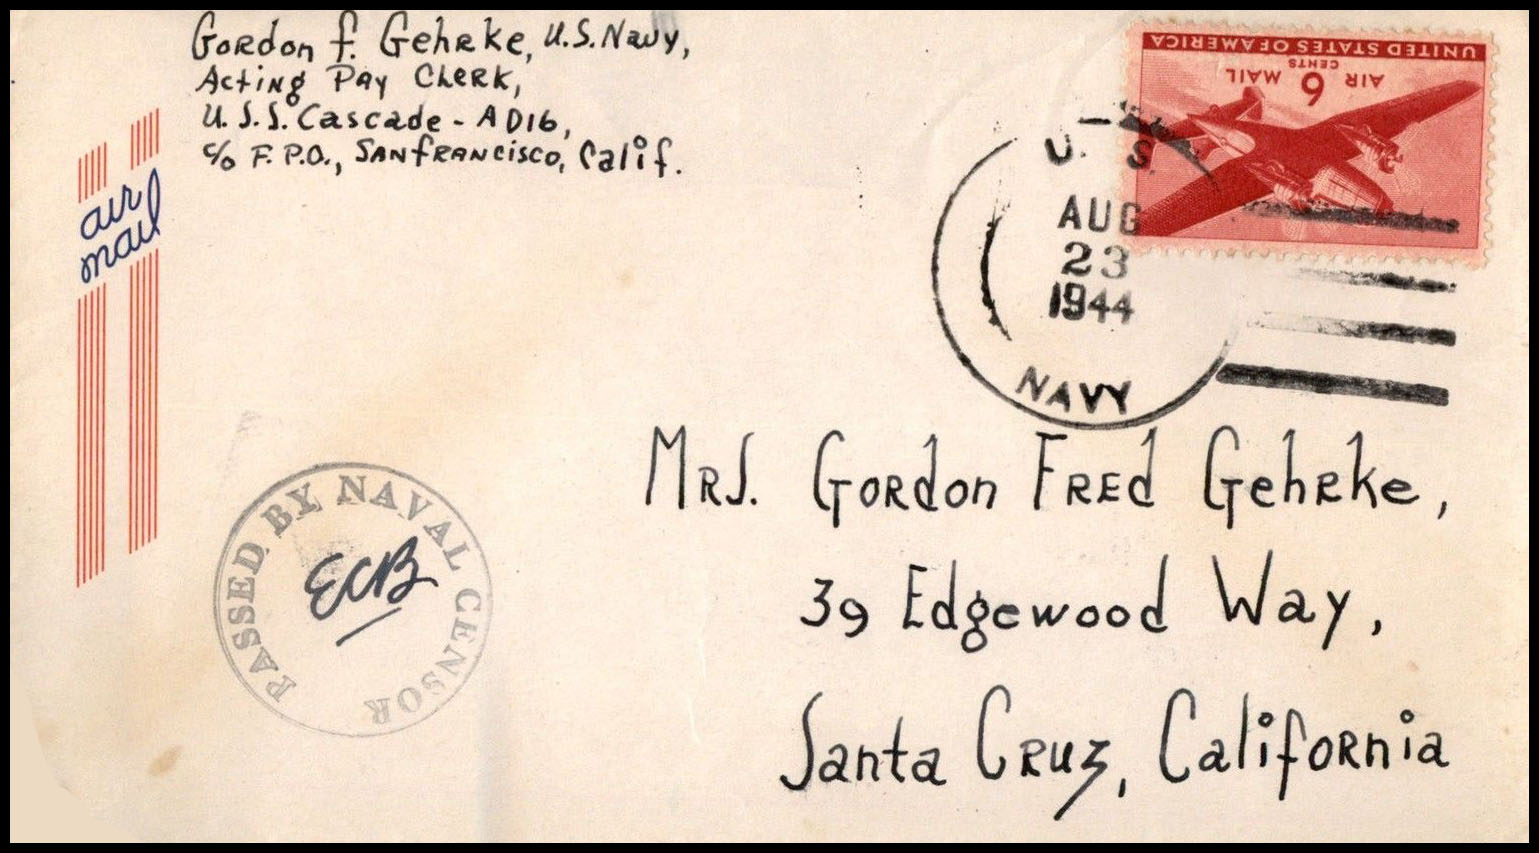 Gordon f. Gehrke, U.S. Navy,
Acting Pay Clerk,
U.S.S. Cascade - AD16,
c/o F.P.O., San Francisco, Calif.
air
mail
UNITED STATES OF AMERICA
CENTS
AIR 6 MAIL
U. S.
AUG
23
1944
NAVY
PASSED BY NAVAL CENSOR
ECB
Mrs. Gordon Fred Gehrke,
39 Edgewood Way,
Santa Cruz, California